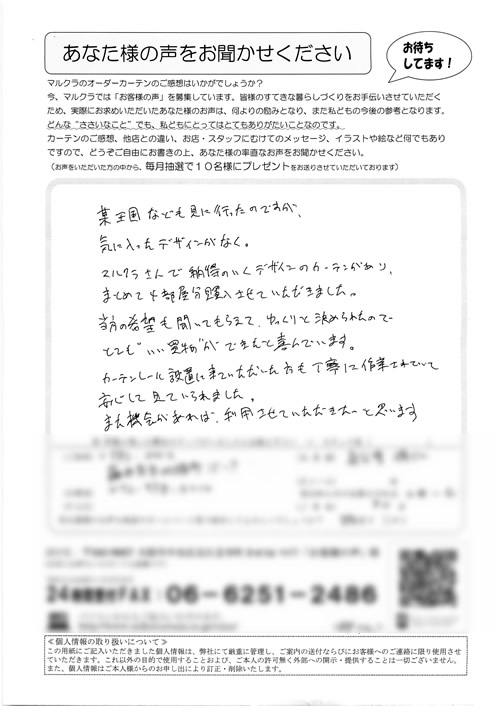 あなた様の声をお聞かせください
お待ち
してます！
マルクラのオーダーカーテンのご感想はいかがでしょうか？
今、マルクラでは「お客様の声」を募集しています。皆様のすてきな暮らしづくりをお手伝いさせていただく
ため、実際にお求めいただいたあなた様のお声は、何よりの励みとなり、また私どもの今後の参考となります。
どんな“ささいなこと”でも、私どもにとってはとてもありがたいことなのです。
カーテンのご感想、他店との違い、お店・スタッフにむけてのメッセージ、イラストや絵など何でもあり
ですので、どうぞご自由にお書きの上、あなた様の率直なお声をお聞かせください。
（お声をいただいた方の中から、毎月抽選で１０名様にプレゼントをお送りさせていただいております）
某王国なども見に行ったのですが、
気に入ったデザインがなく。
マルクラさんで納得のいくデザインのカーテンがあり、
まとめて4部屋分購入させていただきました。
当方の希望も聞いてもらえて、ゆっくりと決められたので
とても“いい買物”ができたと喜んでいます。
カーテンレール設置に来ていただいた方も丁寧に作業されていて
安心して見ていられました。
また機会があれば、利用させていただきたいと思います
24時間受付FAX：06-6251-2486
≪個人情報の取り扱いについて≫
この用紙にご記入いただきました個人情報は、弊社にて厳重に管理し、ご案内の送付ならびにお客様へのご連絡に限り使用させ
ていただきます。これ以外の目的で使用することおよび、ご本人の許可無く外部への開示・提供することは一切ございません。
また、個人情報はご本人様からのお申し出により訂正・削除いたします。